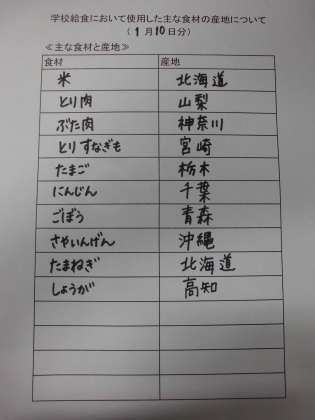 学校給食において使用した主な食材の産地について
(1月10日分)
≪主な食材と産地≫
食材 産地
米 北海道
とり肉 山梨
ぶた肉 神奈川
とりすなぎも 宮崎
たまご 栃木
にんじん 千葉
ごぼう 青森
さやいんげん 沖縄
たまねぎ 北海道
しょうが 高知